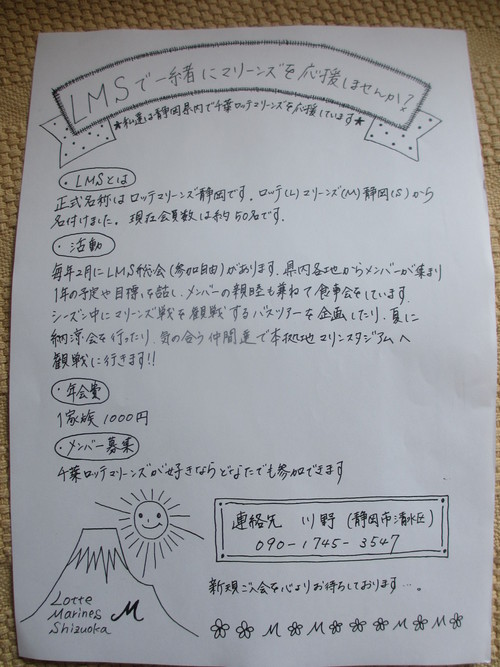 LMSで一緒にマリーンズを応援しませんか?
★私達は静岡県内で千葉ロッテマリーンズを応援しています★
・LMSとは
正式名称はロッテマリーンズ静岡です。ロッテ(L)マリーンズ(M)静岡(S)から
名付けました。現在会員数は約50名です。
・活動
毎年2月にLMS総会(参加自由)があります。県内各地からメンバーが集まり
1年の予定や目標を話し、メンバーの親睦も兼ねて食事会をしています。
シーズン中にマリーンズ戦を観戦するバスツアーを企画したり、夏に
納涼会を行ったり、気の合う仲間達で本拠地マリンスタジアムへ
観戦に行きます!!
・年会費
1家族1000円
・メンバー募集
千葉ロッテマリーンズが好きならどなたでも参加できます
連絡先 川野 (静岡市清水区)
090-1745-3547
新規ご入会を心よりお待ちしております…。
Lotte
Marines M
Shizuoka
M M M M M